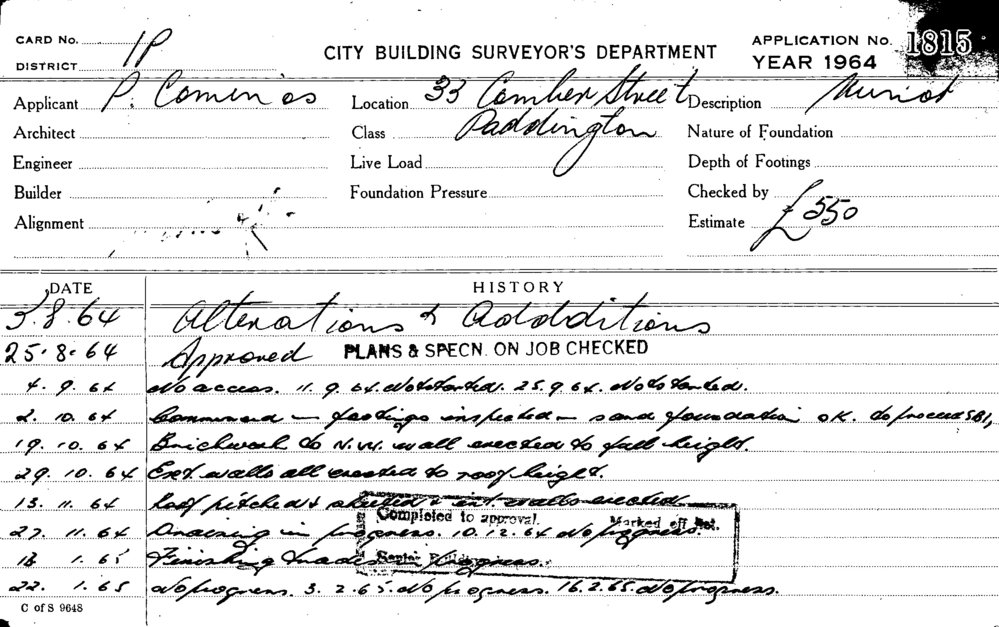 CARD No. 1P
DISTRICT
CITY BUILDING SURVEYOR'S DEPARTMENT
APPLICATION No. 1815
YEAR 1964
Applicant P. Comin os Location 33 Comber Street Description
Architect Class Paddington Nature of Foundation
Engineer Live Load Depth of Footings
Builder Foundation Pressure Checked by
Alignment Estimate £550
DATE HISTORY
5.8.64 Alterations & Addditions
25.8.64 Approved PLANS & SPECN. ON JOB CHECKED
4.9.64 No access. 11.9.64. Not started. 25.9.64. Not started.
2.10.64 Commenced - footings inspected - sand foundation OK. to proceed
19.10.64 Brickwork to N.W. wall erected to full height.
29.10.64 Ext. walls all erected to roof height.
13.11.64 Roof pitched & sheeted & int. walls erected.
Completed to approval. Marked off
27.11.64 in progress. 10.12.64 No progress.
18 1.65 Finishing trades in progress.
22. 1.65 No progress. 3.2.65. No progress. 16.2.65. No progress.
C of S 9648